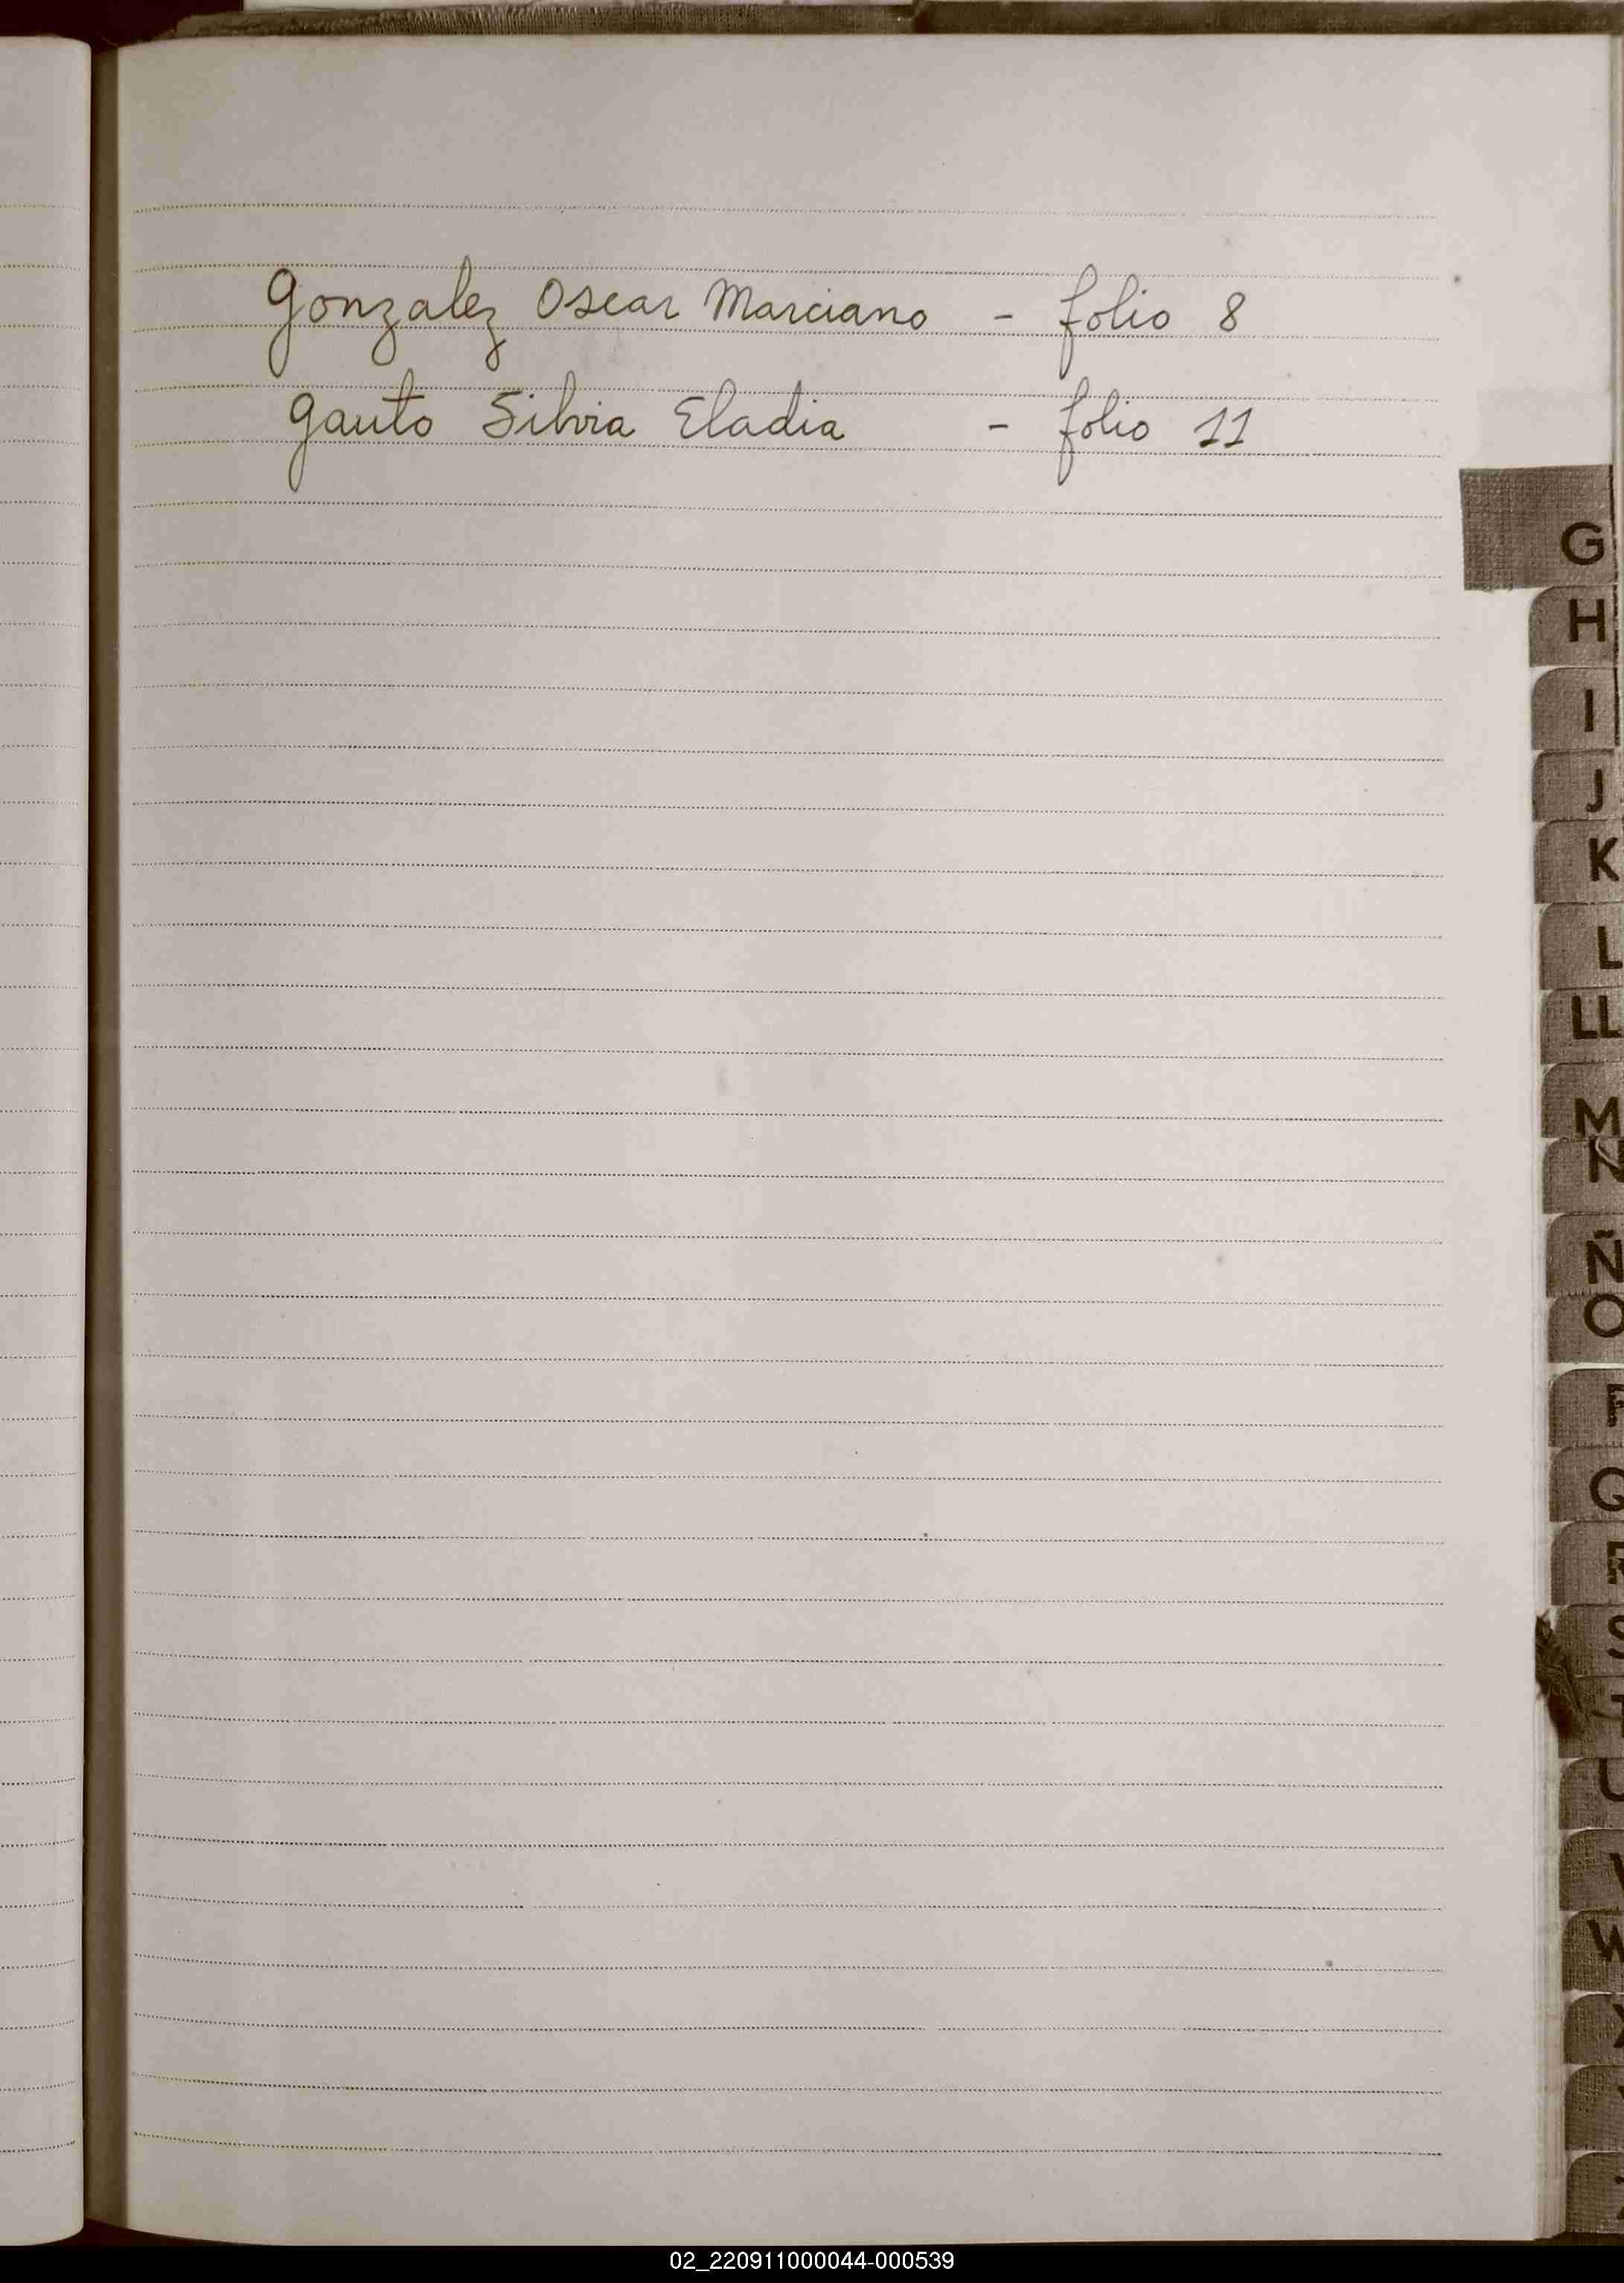 Gonzalez Oscar Marciano - folio 8
Gauto Silvia Eladia - folio 11
G
H
I
J
K
L
LL
M
N
Ñ
O
P
Q
R
S
T
U
V
W
X
02_220911000044-000539